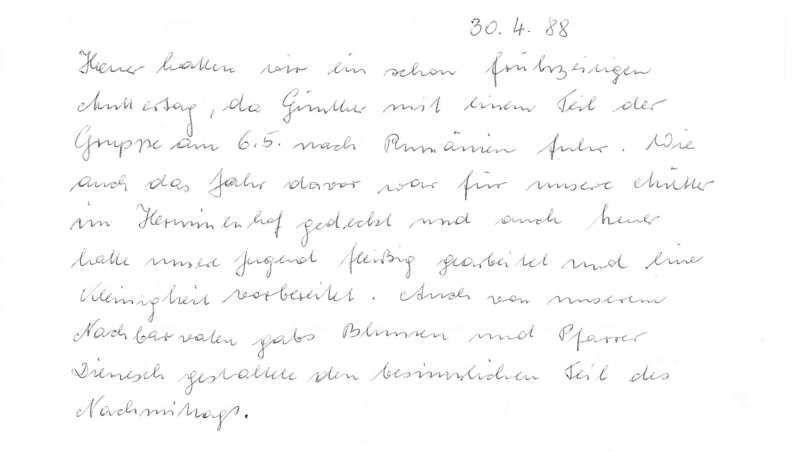 30. 4. 88
Heuer hatten wir ein schon frühzeitigen
Muttertag, da Günther mit einem Teil der
Gruppe am 6.5. nach Rumänien fuhr. Wie
auch das Jahr davor war für unsere Mütter
im Herminenhof gedeckt und auch heuer
hatte unsere Jugend fleißig gearbeitet und eine
Kleinigkeit vorbereitet. Auch von unserem
Nachbarvater gabs Blumen und Pfarrer
Dienesch gestaltete den besinnlichen Teil des
Nachmittags.